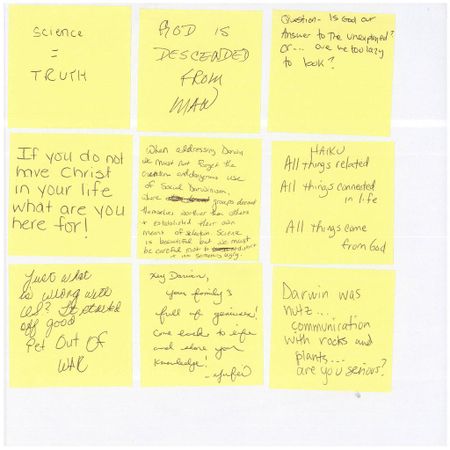 Science
=
TRUTH
GOD IS
DESCENDED
FROM
MAN
Question- Is God our
Answer to The Unexplained?
Or... are we too lazy
to look?
If you do not
have Christ
in your life
what are you
here for!
When addressing Darwin
we must not forget the
creation and dangerous use
of Social Darwinism,
where groups deemed
themselves worthier than others
+ established their own
means of selection. Science
is beautiful but we must
be careful not to distort
something ugly.
HAIKU
All things related
All things connected
in life
All things come
from God
Just what
is wrong with
us? It started
off good
Out Of
WAR
Hey Darwin,
your family's
full of geniuses!
Come back to life
and share your
knowledge!
Darwin was
nutz...
communication
with rocks and
plants...
are you serious?